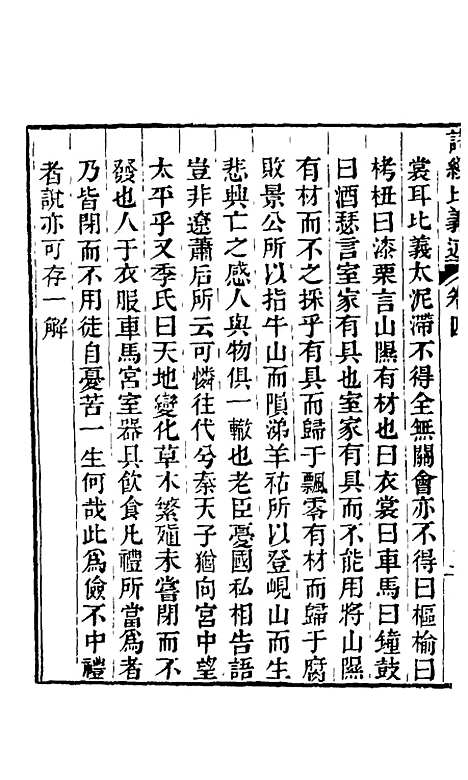 詩經比義述 卷四
裳耳比義太泥滯不得全無關會亦不得曰樞榆曰
栲杻曰漆栗言山隰有材也曰衣裳曰車馬曰鐘鼓
曰酒瑟言室家有具也室家有具而不能用將山隰
有材而不之採乎有具而歸于飄零有材而歸于腐
敗景公所以指牛山而隕涕羊祜所以登峴山而生
悲興亡之感人與物俱一轍也老臣憂國私相告語
豈非遼蕭后所云可憐往代兮秦天子猶向宮中望
太平乎又季氏曰天地變化草木繁殖未嘗閉而不
發也人于衣服車馬宮室器具飲食凡禮所當為者
乃皆閉而不用徒自憂苦一生何哉此為儉不中禮
者說亦可存一解